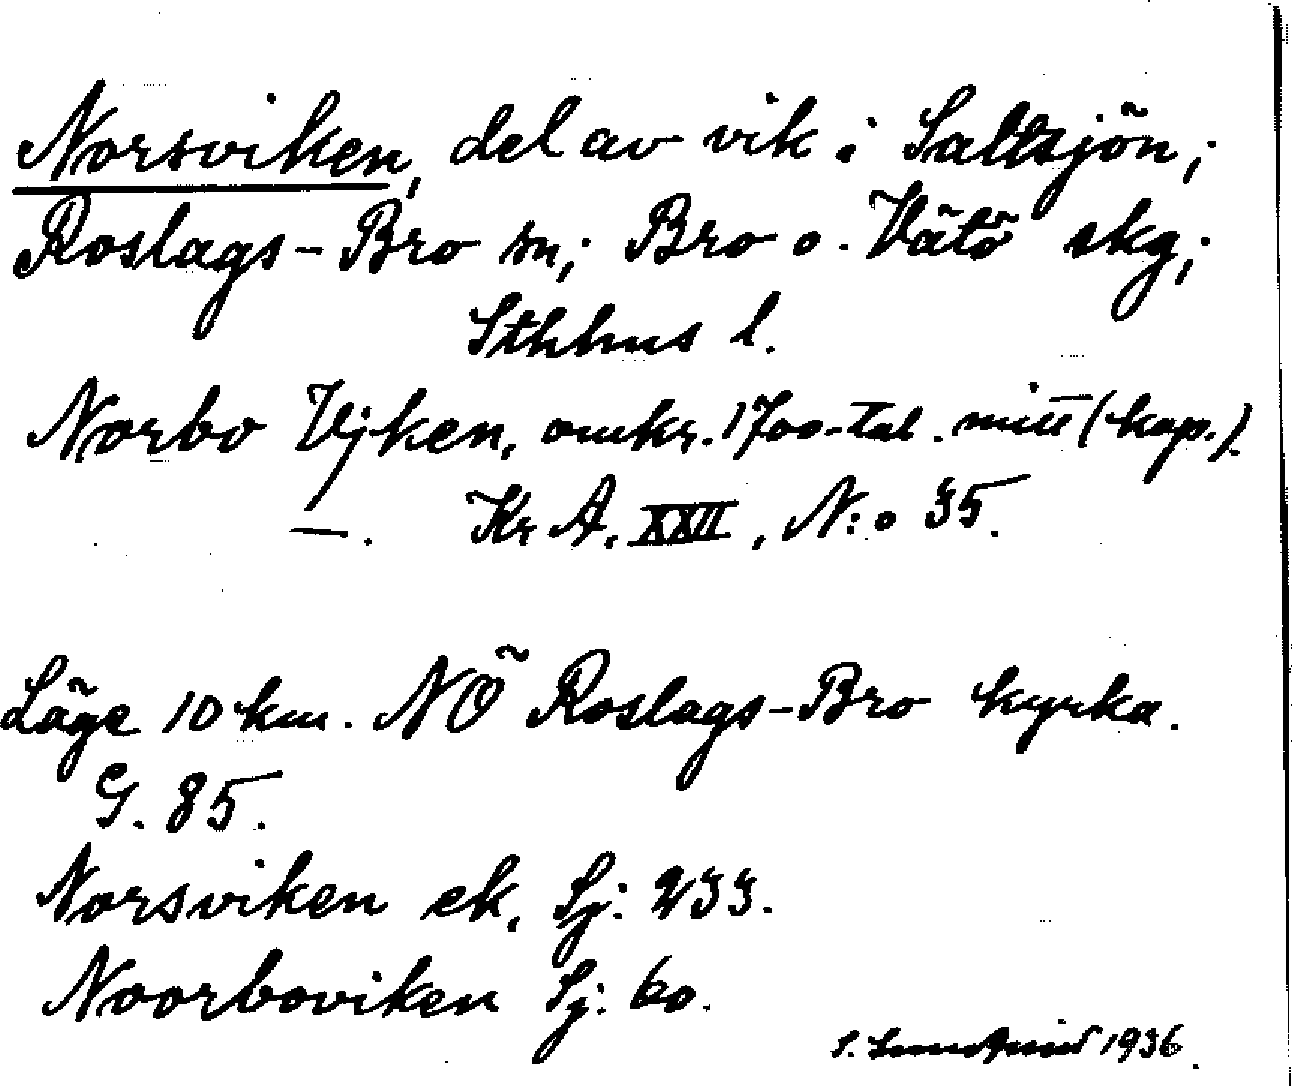 Norsviken, del av vik i Saltsjön;
Roslags-Bro sn; Bro o. Vätö skg;
Sthhus l.
Norbo Vjken, omkr. 1700-tal. mitt (kop.).
—. Kr A. XXII, N:o 35.
Läge 10 km. NÖ Roslags-Bro kyrka.
G. 85.
Norsviken ek. Sj: 233.
Noorboviken Sj: 60.
S. 1936.